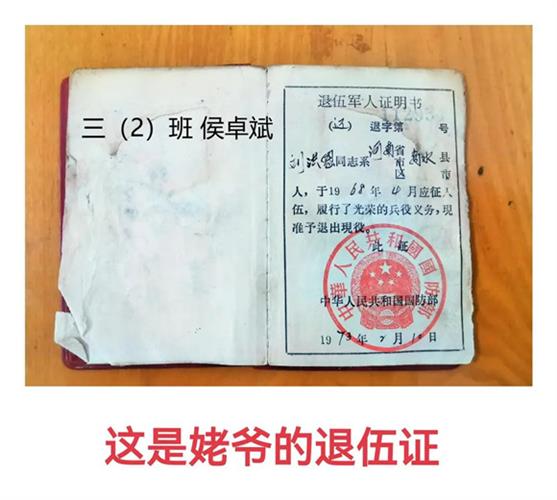 三（2）班 侯卓斌
退伍军人证明书
（辽） 退字第 号
刘洪恩同志系河南省 市 区 县 市
人，于1968年4月应征入
伍，履行了光荣的兵役义务，现
准予退出现役。
此 证
中华人民共和国国防部
中華人民共和國國防部
1973年 月 日
这是姥爷的退伍证